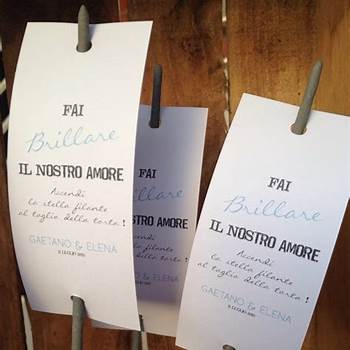 FAI
Brillare
IL NOSTRO AMORE
Accendi
la stella filante
al taglio della torta!
GAETANO & ELENA
FAI
Brillare
IL NOSTRO AMORE
Accendi
la stella filante
al taglio della torta!
& ELENA
FAI
Brillare
IL NOSTRO AMORE
Accendi
la stella filante
al taglio della torta!
GAETANO & ELENA